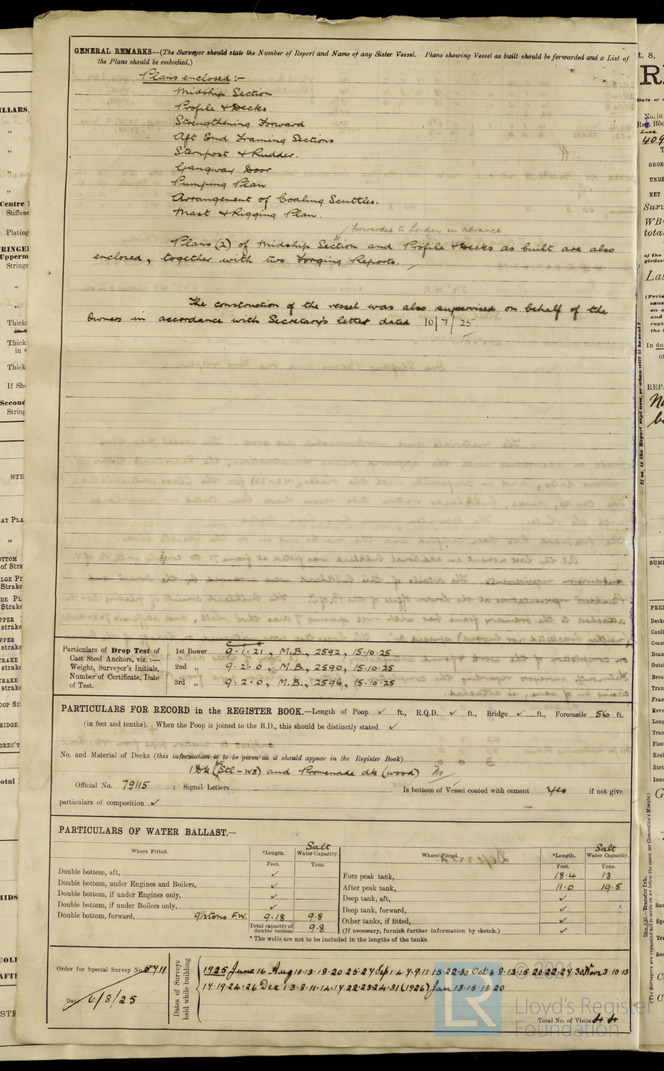 GENERAL REMARKS—(The Surveyor should state the Number of Report and Name of any Sister Vessel. Plans showing Vessel as built should be forwarded and a List of
the Plans should be embodied.)
Plans enclosed:-
Midship Section
Profile & Decks
Strengthening Forward
Aft End Framing Sections
Sternpost & Rudder.
Gangway Door
Pumping Plan
Arrangement of Coaling Scuttles.
Mast & Rigging Plan.
forwarded to London in advance
Plans (2) of Midship Section and Profile & Decks as built are also
enclosed, together with two Forging Reports.
The construction of the vessel was also supervised on behalf of the
Owners in accordance with Secretary's letter dated 10/7/25
Particulars of Drop Test of
Cast Steel Anchors, viz.:—
Weight, Surveyor's Initials,
Number of Certificate, Date
of Test.
1st Bower 9.1.21, M.B., 2592, 15.10.25
2nd „ 9.2.0, M.B., 2590, 15.10.25
3rd „ 9.2.0, M.B., 2596, 15.10.25
PARTICULARS FOR RECORD in the REGISTER BOOK.—Length of Poop ✓ ft., R.Q.D. ✓ ft., Bridge ✓ ft., Forecastle 56 ft.
(in feet and tenths). When the Poop is joined to the B.D., this should be distinctly stated ✓
No. and Material of Decks (this information is to be given as it should appear in the Register Book)
1 Dk (Stl-WS) and Promenade dk (wood)
Official No. 79115 ; Signal Letters Is bottom of Vessel coated with cement Yes if not give
particulars of composition ✓
PARTICULARS OF WATER BALLAST.—
Where Fitted. *Length. Salt Water Capacity.
Feet. Tons.
Double bottom, aft, ✓
Double bottom, under Engines and Boilers, ✓
Double bottom, if under Engines only, ✓
Double bottom, if under Boilers only, ✓
Double bottom, forward, 9½ tons F.W. 9.18 9.8
Total capacity of double bottom 9.8
Where Fitted. *Length. Salt Water Capacity.
Feet. Tons.
Fore peak tank, 18.4 13
After peak tank, 11.0 19.5
Deep tank, aft, ✓
Deep tank, forward, ✓
Other tanks, if fitted, ✓
(If necessary, furnish further information by sketch.) ✓
* The wells are not to be included in the lengths of the tanks.
Order for Special Survey No. 5711
Date 6/8/25
Dates of Surveys
held while building
1925 June 16 Aug 11.13.18.20.25.27 Sep 1.4.7.9.11.15.22.30 Oct 6.8.13.15.20.22.27.30 Nov 3.10.13
17.19.24.26 Dec 1.3.8.11.14.17.22.23.24.31 (1926) Jan 13.15.18.20
Total No. of Visits 44
© 2021
Lloyd's Register
Foundation
LR